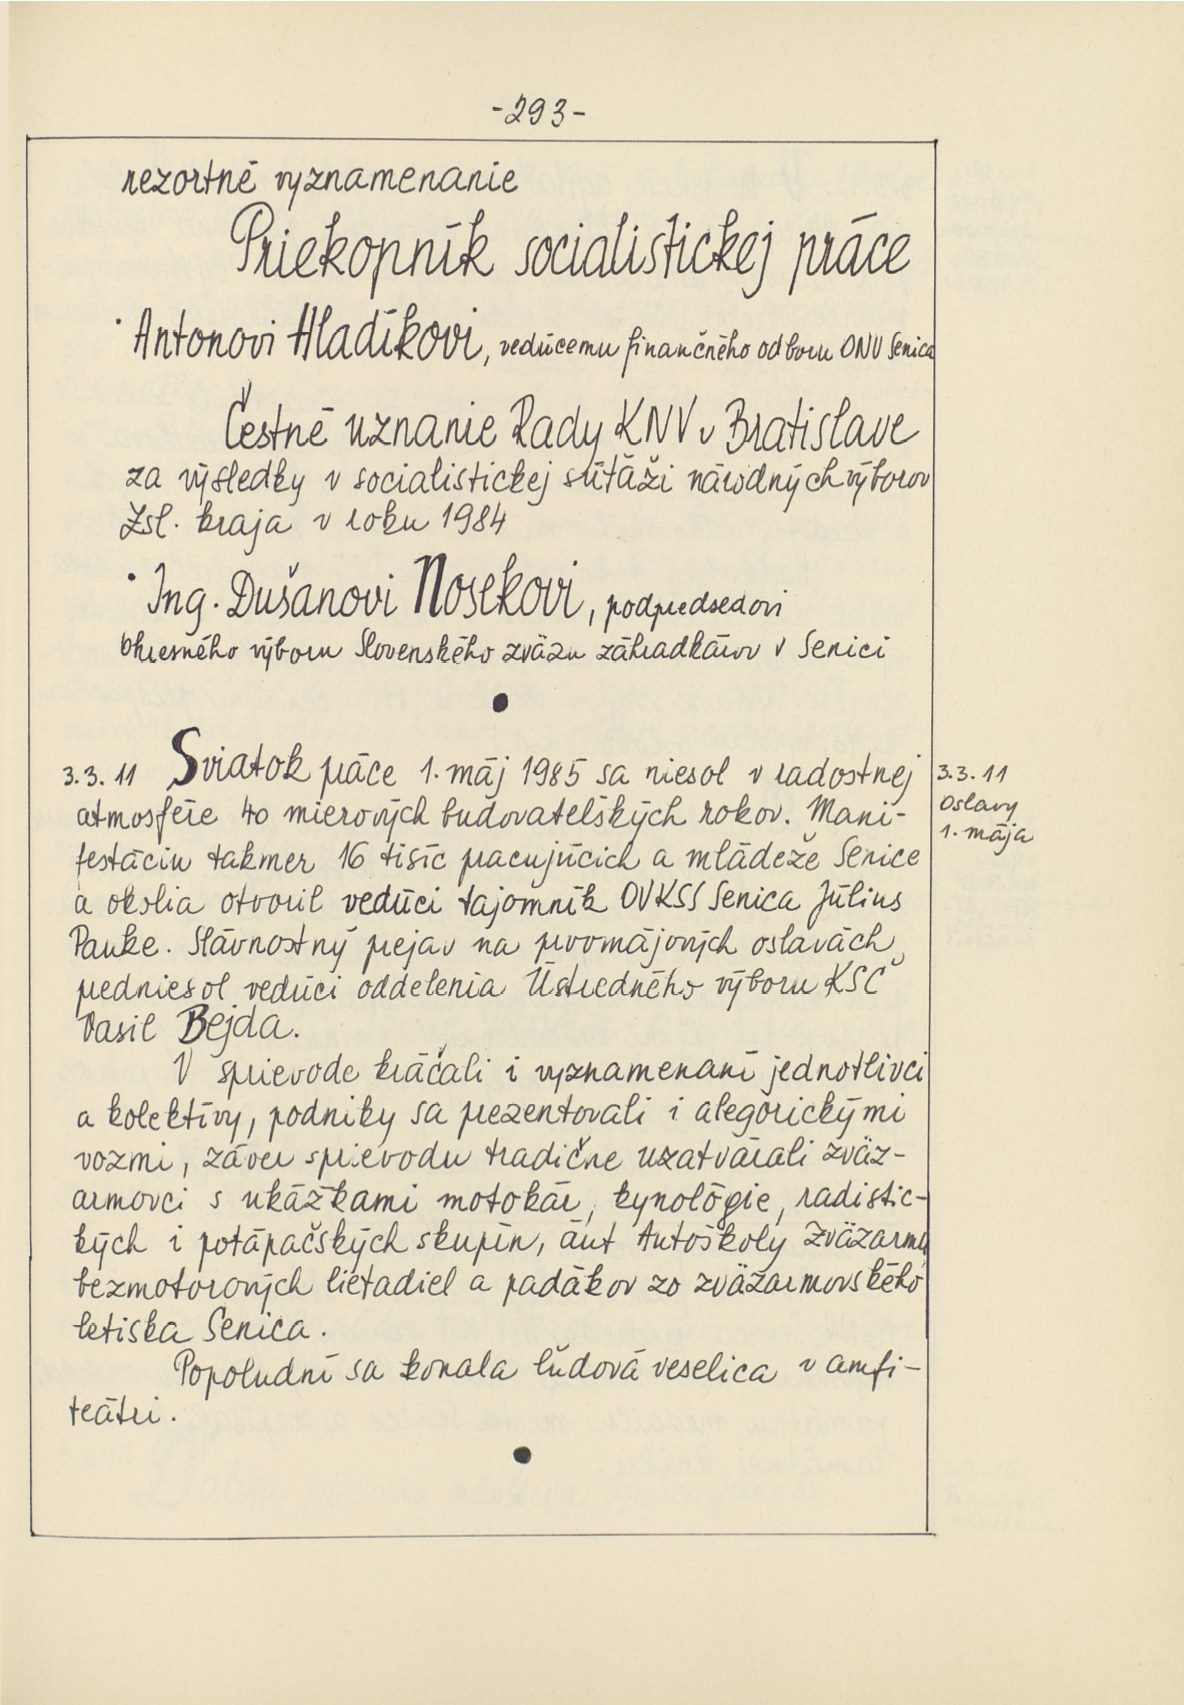 -293-
rezortné vyznamenanie
Priekopník socialistickej práce
· Antonovi Hladíkovi, vedúcemu finančného odboru ONV Senica
Čestné uznanie Rady KNV v Bratislave
za výsledky v socialistickej súťaži národných výborov
Zsl. kraja v roku 1984
· Ing. Dušanovi Nosekovi, podpredsedovi
Okresného výboru Slovenského zväzu záhradkárov v Senici
3.3.11 Sviatok práce 1. máj 1985 sa niesol v radostnej
atmosfére 40 mierových budovateľských rokov. Mani-
festáciu takmer 16 tisíc pracujúcich a mládeže Senice
a okolia otvoril vedúci tajomník OVKSS Senica Július
Pauke. Slávnostný prejav na prvomájových oslavách
predniesol vedúci oddelenia Ústredného výboru KSČ
Vasil Bejda.
V sprievode kráčali i vyznamenaní jednotlivci
a kolektívy, podniky sa prezentovali i alegorickými
vozmi, záver sprievodu tradične uzatvárali zväz-
armovci s ukážkami motokár, kynológie, radistic-
kých i potápačských skupín, áut Autoškoly Zväzarmu,
bezmotorových lietadiel a padákov zo zväzarmovského
letiska Senica.
Popoludní sa konala ľudová veselica v amfi-
teátri.
3.3.11
Oslavy
1. mája